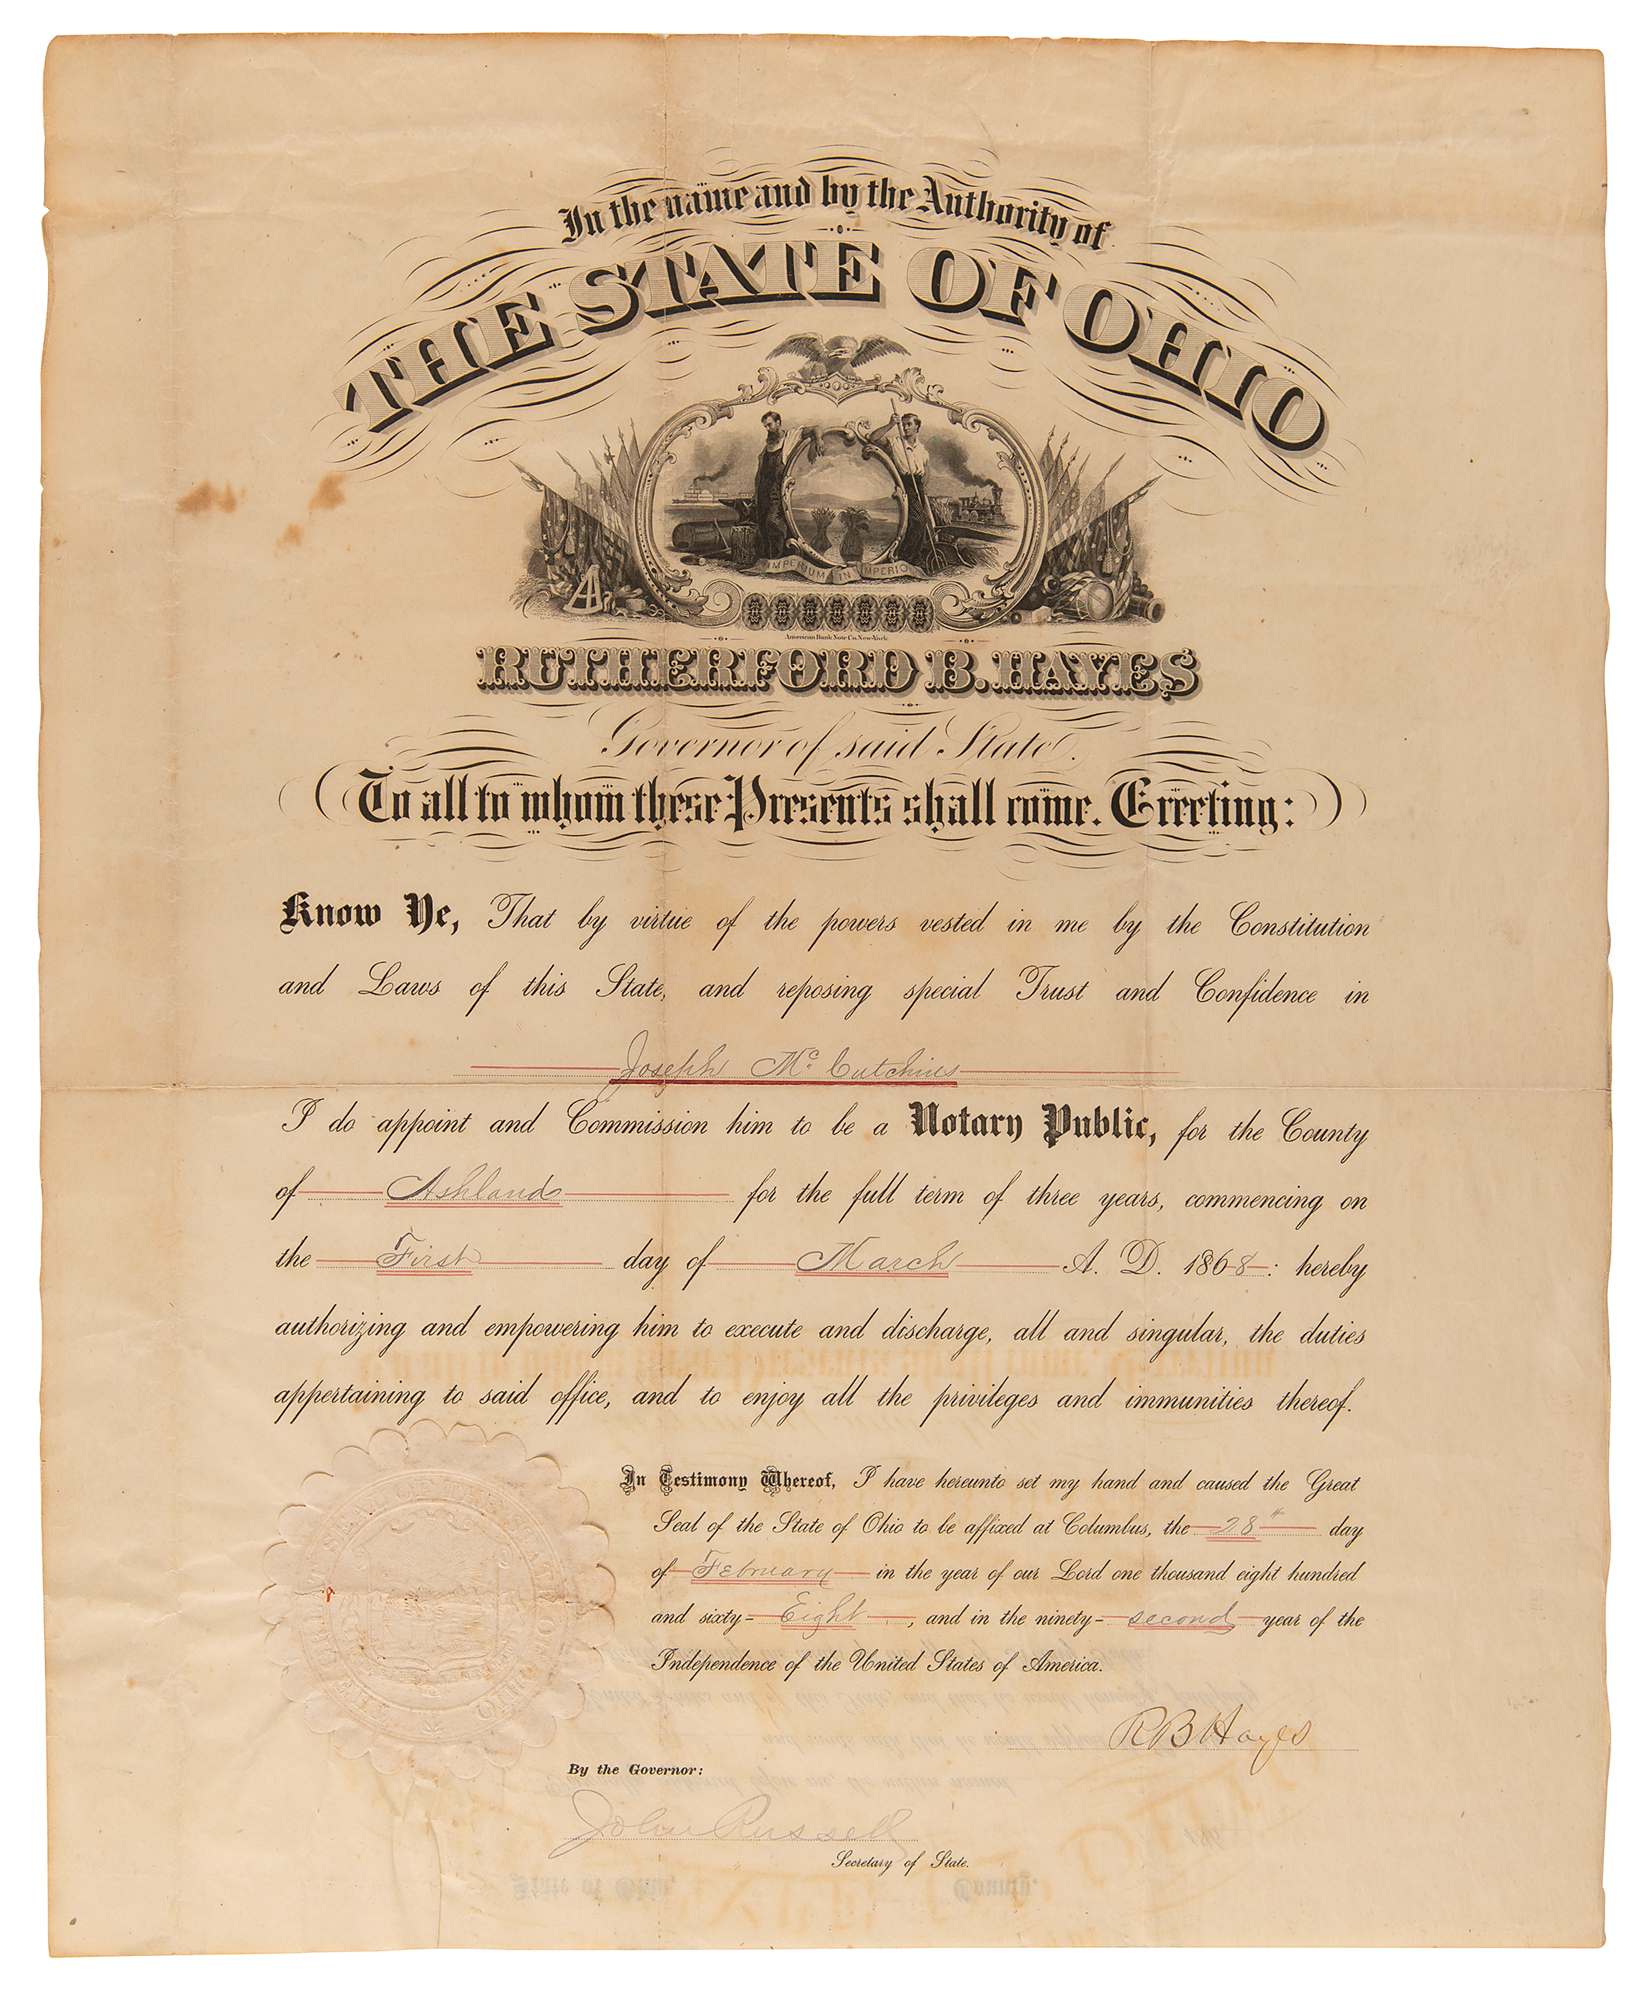 In the name and by the Authority of
THE STATE OF OHIO
IMPERIUM IN IMPERIO
American Bank Note Co. New-York.
RUTHERFORD B. HAYES
Governor of said State.
To all to whom these Presents shall come. Greeting:
Know Ye, That by virtue of the powers vested in me by the Constitution
and Laws of this State, and reposing special Trust and Confidence in
Joseph Mc. Cutchins
I do appoint and Commission him to be a Notary Public, for the County
of Ashland for the full term of three years, commencing on
the First day of March A. D. 1868: hereby
authorizing and empowering him to execute and discharge, all and singular, the duties
appertaining to said office, and to enjoy all the privileges and immunities thereof.
In Testimony Whereof, I have hereunto set my hand and caused the Great
Seal of the State of Ohio to be affixed at Columbus, the 28th day
of February in the year of our Lord one thousand eight hundred
and sixty-Eight, and in the ninety-second year of the
Independence of the United States of America.
THE GREAT SEAL OF THE STATE OF OHIO
R B Hayes
By the Governor:
John Russell
Secretary of State.